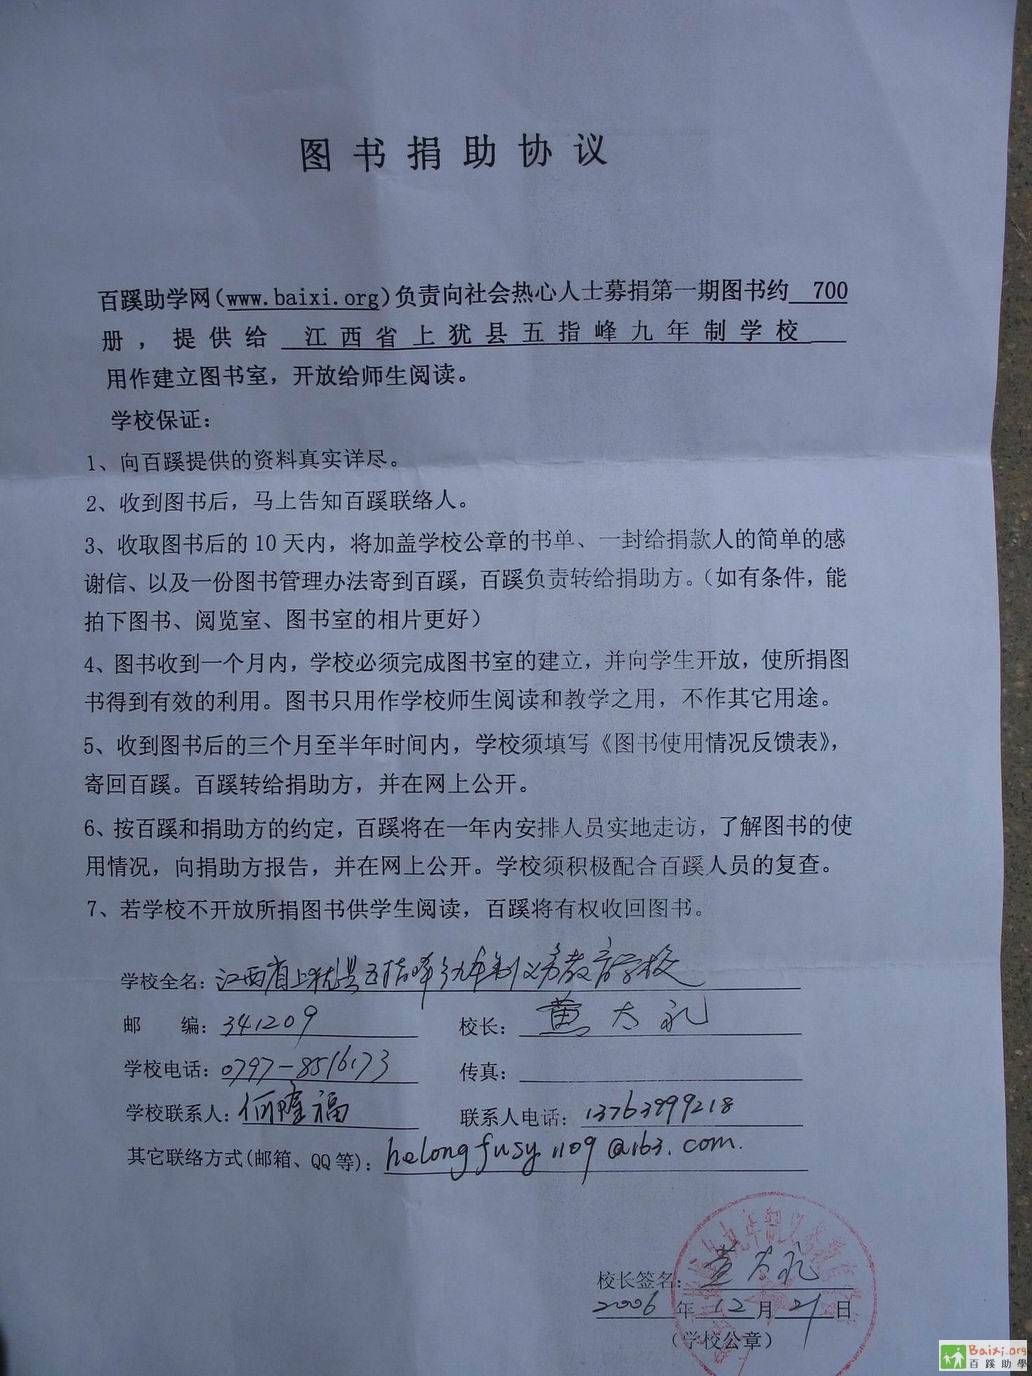 图书捐助协议
百蹊助学网(www.baixi.org)负责向社会热心人士募捐第一期图书约 700
册，提供给 江西省上犹县五指峰九年制学校
用作建立图书室，开放给师生阅读。
学校保证：
1、向百蹊提供的资料真实详尽。
2、收到图书后，马上告知百蹊联络人。
3、收取图书后的10天内，将加盖学校公章的书单、一封给捐款人的简单的感
谢信、以及一份图书管理办法寄到百蹊，百蹊负责转给捐助方。（如有条件，能
拍下图书、阅览室、图书室的相片更好）
4、图书收到一个月内，学校必须完成图书室的建立，并向学生开放，使所捐图
书得到有效的利用。图书只用作学校师生阅读和教学之用，不作其它用途。
5、收到图书后的三个月至半年时间内，学校须填写《图书使用情况反馈表》，
寄回百蹊。百蹊转给捐助方，并在网上公开。
6、按百蹊和捐助方的约定，百蹊将在一年内安排人员实地走访，了解图书的使
用情况，向捐助方报告，并在网上公开。学校须积极配合百蹊人员的复查。
7、若学校不开放所捐图书供学生阅读，百蹊将有权收回图书。
学校全名：江西省上犹县五指峰乡九年制义务教育学校
邮 编：341209 校长：黄太礼
学校电话：0797-8516173 传真：
学校联系人：何隆福 联系人电话：13763999218
其它联络方式(邮箱、QQ等)：helongfusy1109@163.com.
校长签名：黄太礼
2006年12月21日
（学校公章）
Baixi.org
百蹊助學